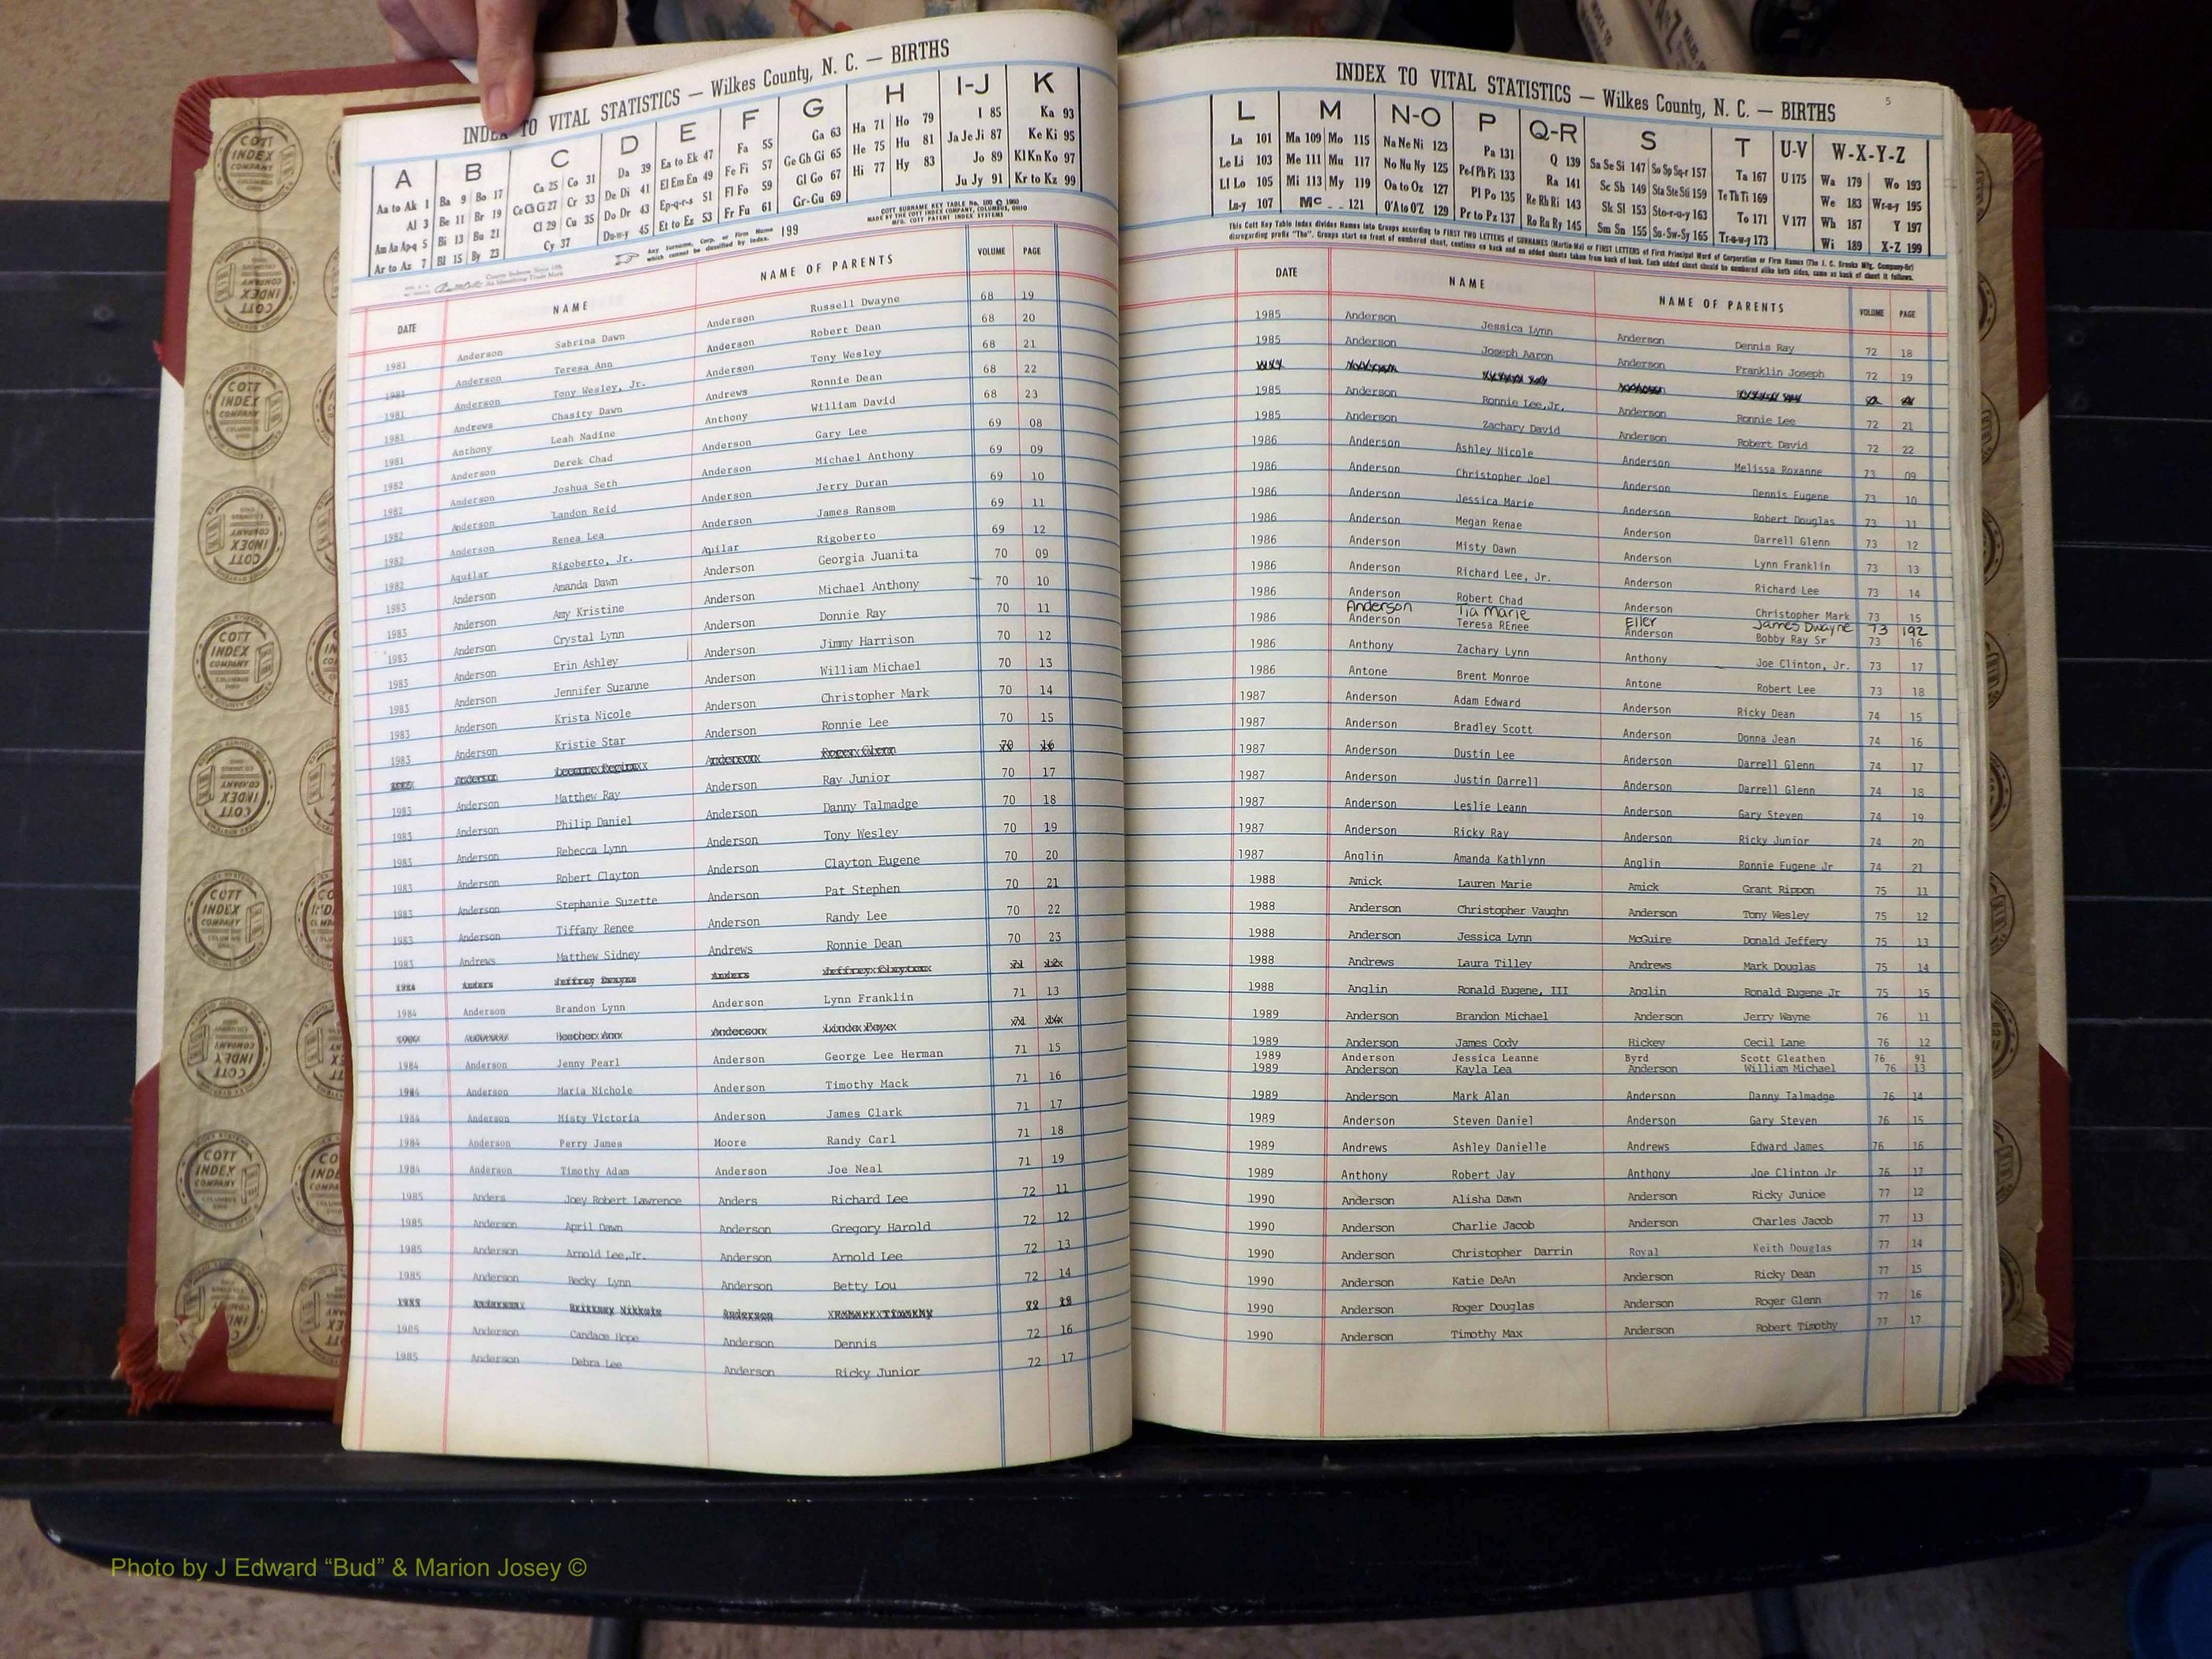 INDEX TO VITAL STATISTICS — Wilkes County, N. C. — BIRTHS
A B C D E F G H I-J K
Aa to Ak 1 Ba 9 Bo 17 Ca 25 Co 31 Da 39 Ea to Ek 47 Fa 55 Ga 63 Ha 71 Ho 79 I 85 Ka 93
Al 3 Be 11 Br 19 Ce Ch Ci 27 Cr 33 De Di 41 El Em En 49 Fe Fi 57 Ge Gh Gi 65 He 75 Hu 81 Ja Je Ji 87 Ke Ki 95
Am An Ap-q 5 Bi 13 Bu 21 Cl 29 Cu 35 Do Dr 43 Ep-q-r-s 51 Fl Fo 59 Gl Go 67 Hi 77 Hy 83 Jo 89 Kl Kn Ko 97
Ar to Az 7 Bl 15 By 23 Cy 37 Du-w-y 45 Et to Ez 53 Fr Fu 61 Gr-Gu 69 Ju Jy 91 Kr to Kz 99
Any Surname, Corp. or Firm Name which cannot be classified by index. 199
COTT SURNAME KEY TABLE No. 100 © 1960
MADE BY THE COTT INDEX COMPANY, COLUMBUS, OHIO
MFG. COTT PATENT INDEX SYSTEMS
DATE NAME NAME OF PARENTS VOLUME PAGE
1981 Anderson Sabrina Dawn Anderson Russell Dwayne 68 19
1981 Anderson Teresa Ann Anderson Robert Dean 68 20
1981 Anderson Tony Wesley, Jr. Anderson Tony Wesley 68 21
1981 Andrews Chasity Dawn Andrews Ronnie Dean 68 22
1981 Anthony Leah Nadine Anthony William David 68 23
1982 Anderson Derek Chad Anderson Gary Lee 69 08
1982 Anderson Joshua Seth Anderson Michael Anthony 69 09
1982 Anderson Landon Reid Anderson Jerry Duran 69 10
1982 Anderson Renea Lea Anderson James Ransom 69 11
1982 Aguilar Rigoberto, Jr. Aguilar Rigoberto 69 12
1983 Anderson Amanda Dawn Anderson Georgia Juanita 70 09
1983 Anderson Amy Kristine Anderson Michael Anthony 70 10
1983 Anderson Crystal Lynn Anderson Donnie Ray 70 11
1983 Anderson Erin Ashley Anderson Jimmy Harrison 70 12
1983 Anderson Jennifer Suzanne Anderson William Michael 70 13
1983 Anderson Krista Nicole Anderson Christopher Mark 70 14
1983 Anderson Kristie Star Anderson Ronnie Lee 70 15
Anderson Anderson Roger Glenn 70 16
1983 Anderson Matthew Ray Anderson Ray Junior 70 17
1983 Anderson Philip Daniel Anderson Danny Talmadge 70 18
1983 Anderson Rebecca Lynn Anderson Tony Wesley 70 19
1983 Anderson Robert Clayton Anderson Clayton Eugene 70 20
1983 Anderson Stephanie Suzette Anderson Pat Stephen 70 21
1983 Anderson Tiffany Renee Anderson Randy Lee 70 22
1983 Andrews Matthew Sidney Andrews Ronnie Dean 70 23
1984 Anders Jeffrey Dwayne Anders
1984 Anderson Brandon Lynn Anderson Lynn Franklin 71 13
1984 Anderson Jenny Pearl Anderson George Lee Herman 71 15
1984 Anderson Maria Nichole Anderson Timothy Mack 71 16
1984 Anderson Misty Victoria Anderson James Clark 71 17
1984 Anderson Perry James Moore Randy Carl 71 18
1984 Anderson Timothy Adam Anderson Joe Neal 71 19
1985 Anders Joey Robert Lawrence Anders Richard Lee 72 11
1985 Anderson April Dawn Anderson Gregory Harold 72 12
1985 Anderson Arnold Lee,Jr. Anderson Arnold Lee 72 13
1985 Anderson Becky Lynn Anderson Betty Lou 72 14
1985 Anderson Anderson
1985 Anderson Candace Hope Anderson Dennis 72 16
1985 Anderson Debra Lee Anderson Ricky Junior 72 17
INDEX TO VITAL STATISTICS — Wilkes County, N. C. — BIRTHS 5
L M N-O P Q-R S T U-V W-X-Y-Z
La 101 Ma 109 Mo 115 Na Ne Ni 123 Pa 131 Q 139 Sa Se Si 147 So Sp Sq-r 157 Ta 167 U 175 Wa 179 Wo 193
Le Li 103 Me 111 Mu 117 No Nu Ny 125 Pe-f Ph Pi 133 Ra 141 Sc Sh 149 Sta Ste Sti 159 Te Th Ti 169 We 183 Wr-u-y 195
Ll Lo 105 Mi 113 My 119 Oa to Oz 127 Pl Po 135 Re Rh Ri 143 Sk Sl 153 Sto-r-u-y 163 To 171 V 177 Wh 187 Y 197
Lu-y 107 Mc 121 O'A to O'Z 129 Pr to Pz 137 Ro Ru Ry 145 Sm Sn 155 Su-Sw-Sy 165 Tr-u-w-y 173 Wi 189 X-Z 199
This Cott Key Table Index divides Names into Groups according to FIRST TWO LETTERS of SURNAMES (Martin-Ma) or FIRST LETTERS of First Principal Word of Corporation or Firm Names (The J. C. Brooks Mfg. Company-Br)
disregarding prefix "The". Groups start on front of numbered sheet, continue on back and on added sheets taken from back of book. Each added sheet should be numbered alike both sides, same as back of sheet it follows.
DATE NAME NAME OF PARENTS VOLUME PAGE
1985 Anderson Jessica Lynn Anderson Dennis Ray 72 18
1985 Anderson Joseph Aaron Anderson Franklin Joseph 72 19
1985 Anderson Ronnie Lee,Jr. Anderson Ronnie Lee 72 21
1985 Anderson Zachary David Anderson Robert David 72 22
1986 Anderson Ashley Nicole Anderson Melissa Roxanne 73 09
1986 Anderson Christopher Joel Anderson Dennis Eugene 73 10
1986 Anderson Jessica Marie Anderson Robert Douglas 73 11
1986 Anderson Megan Renae Anderson Darrell Glenn 73 12
1986 Anderson Misty Dawn Anderson Lynn Franklin 73 13
1986 Anderson Richard Lee, Jr. Anderson Richard Lee 73 14
1986 Anderson Robert Chad Anderson Christopher Mark 73 15
Anderson Tia Marie Eller James Dwayne 73 192
1986 Anderson Teresa REnee Anderson Bobby Ray Sr 73 16
1986 Anthony Zachary Lynn Anthony Joe Clinton, Jr. 73 17
1986 Antone Brent Monroe Antone Robert Lee 73 18
1987 Anderson Adam Edward Anderson Ricky Dean 74 15
1987 Anderson Bradley Scott Anderson Donna Jean 74 16
1987 Anderson Dustin Lee Anderson Darrell Glenn 74 17
1987 Anderson Justin Darrell Anderson Darrell Glenn 74 18
1987 Anderson Leslie Leann Anderson Gary Steven 74 19
1987 Anderson Ricky Ray Anderson Ricky Junior 74 20
1987 Anglin Amanda Kathlynn Anglin Ronnie Eugene Jr 74 21
1988 Amick Lauren Marie Amick Grant Rippon 75 11
1988 Anderson Christopher Vaughn Anderson Tony Wesley 75 12
1988 Anderson Jessica Lynn McGuire Donald Jeffery 75 13
1988 Andrews Laura Tilley Andrews Mark Douglas 75 14
1988 Anglin Ronald Eugene, III Anglin Ronald Eugene Jr 75 15
1989 Anderson Brandon Michael Anderson Jerry Wayne 76 11
1989 Anderson James Cody Hickey Cecil Lane 76 12
1989 Anderson Jessica Leanne Byrd Scott Gleathen 76 91
1989 Anderson Kayla Lea Anderson William Michael 76 13
1989 Anderson Mark Alan Anderson Danny Talmadge 76 14
1989 Anderson Steven Daniel Anderson Gary Steven 76 15
1989 Andrews Ashley Danielle Andrews Edward James 76 16
1989 Anthony Robert Jay Anthony Joe Clinton Jr 76 17
1990 Anderson Alisha Dawn Anderson Ricky Junioe 77 12
1990 Anderson Charlie Jacob Anderson Charles Jacob 77 13
1990 Anderson Christopher Darrin Royal Keith Douglas 77 14
1990 Anderson Katie DeAn Anderson Ricky Dean 77 15
1990 Anderson Roger Douglas Anderson Roger Glenn 77 16
1990 Anderson Timothy Max Anderson Robert Timothy 77 17
COTT
INDEX
COMPANY
Photo by J Edward “Bud” & Marion Josey ©